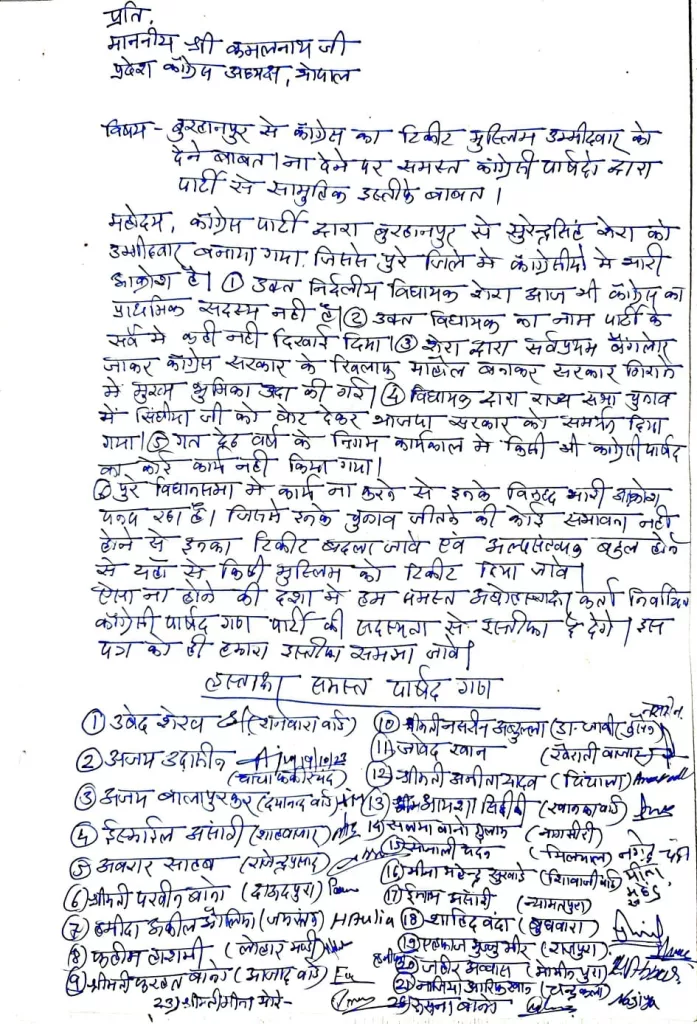 प्रति,
माननीय श्री कमलनाथ जी
प्रदेश काँग्रेस अध्यक्ष, भोपाल
विषय - बुरहानपुर से काँग्रेस का टिकीट मुस्लिम उम्मीदवार को
देने बाबत। ना देने पर समस्त कांग्रेसी पार्षदो द्वारा
पार्टी से सामुहिक इस्तीफे बाबत।
महोदय, काँग्रेस पार्टी द्वारा बुरहानपुर से सुरेन्द्रसिंह शेरा को
उम्मीदवार बनाया गया. जिससे पुरे जिले मे काँग्रेसीयो मे भारी
आक्रोश है। ① उक्त निर्दलीय विधायक शेरा आज भी काँग्रेस का
प्राथमिक सदस्य नही है। ② उक्त विधायक का नाम पार्टी के
सर्वे मे कही नही दिखाई दिया। ③ शेरा द्वारा सर्वप्रथम बैंगलोर
जाकर काँग्रेस सरकार के खिलाफ माहोल बनाकर सरकार गिराने
मे मुख्य भुमिका अदा की गई। ④ विधायक द्वारा राज्य सभा चुनाव
में सिंधीया जी को वोट देकर भाजपा सरकार को समर्थन दिया
गया। ⑤ गत देढ वर्ष के निगम कार्यकाल मे किसी भी कांग्रेसी पार्षद
का कोई कार्य नही किया गया।
⑥ पुरे विधानसभा मे कार्य ना करने से इनके विरुद्ध भारी आक्रोश
पनप रहा है। जिसमे इनके चुनाव जीतने की कोई संभावना नही
होने से इनका टिकीट बदला जावे एवं अल्पसंख्यक बहुल होने
से यहाँ से किसी मुस्लिम को टिकीट दिया जावे।
ऐसा ना होने की दशा मे हम समस्त अधोहस्ताक्षर कर्ता निर्वाचित
काँग्रेसी पार्षद गण पार्टी की सदस्यता से इस्तीफा दे देंगे। इस
पत्र को ही हमारा इस्तीफा समझा जावे।
हस्ताक्षर समस्त पार्षद गण
① उबेद शेख (शनवारा वार्ड)
② अजय उदासीन
③ अजय बालापुरकर (दयानंद वार्ड)
④ ईस्माईल अंसारी (शाहबाजार)
⑤ अबरार साहब (राजेन्द्रप्रसाद)
⑥ श्रीमती परवीन बानो (दाऊदपुरा)
⑦ हमीदा अकील औलिया (जयस्तंभ) HAulia
⑧ फहीम हाशमी (लोहार मंडी)
⑨ श्रीमती फरहत बानो (आजाद वार्ड)
23) श्रीमती मीना मोरे-
⑩ श्रीमती नसरीन अब्दुल्ला (डा. जाकीर हुसैन)
⑪ जावेद खान (खैराती बाजार)
⑫ श्रीमती अनीता यादव (चिंचाला)
⑬ आयशा सिद्दीकी
14) सलमा बानो (नागझीरी)
⑯ मीना महेन्द्र सुरवाडे (शिवाजी वार्ड)
⑰ ईनाम अंसारी (न्यामतपुरा)
⑱ शाहिद बंदा (बुधवारा)
⑲ मुन्नु मीर (राजपुरा)
⑳ जहीर अब्बास (मोमीनपुरा)
㉑ नाजिया आरिफ खान (चन्द्रकला) Naziya
22) बानो